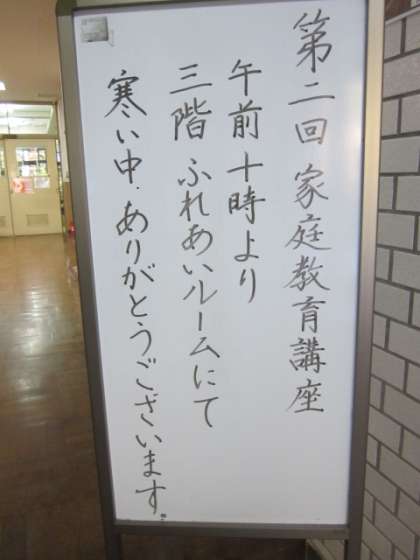 第二回 家庭教育講座
午前十時より
三階 ふれあいルームにて
寒い中、ありがとうございます。